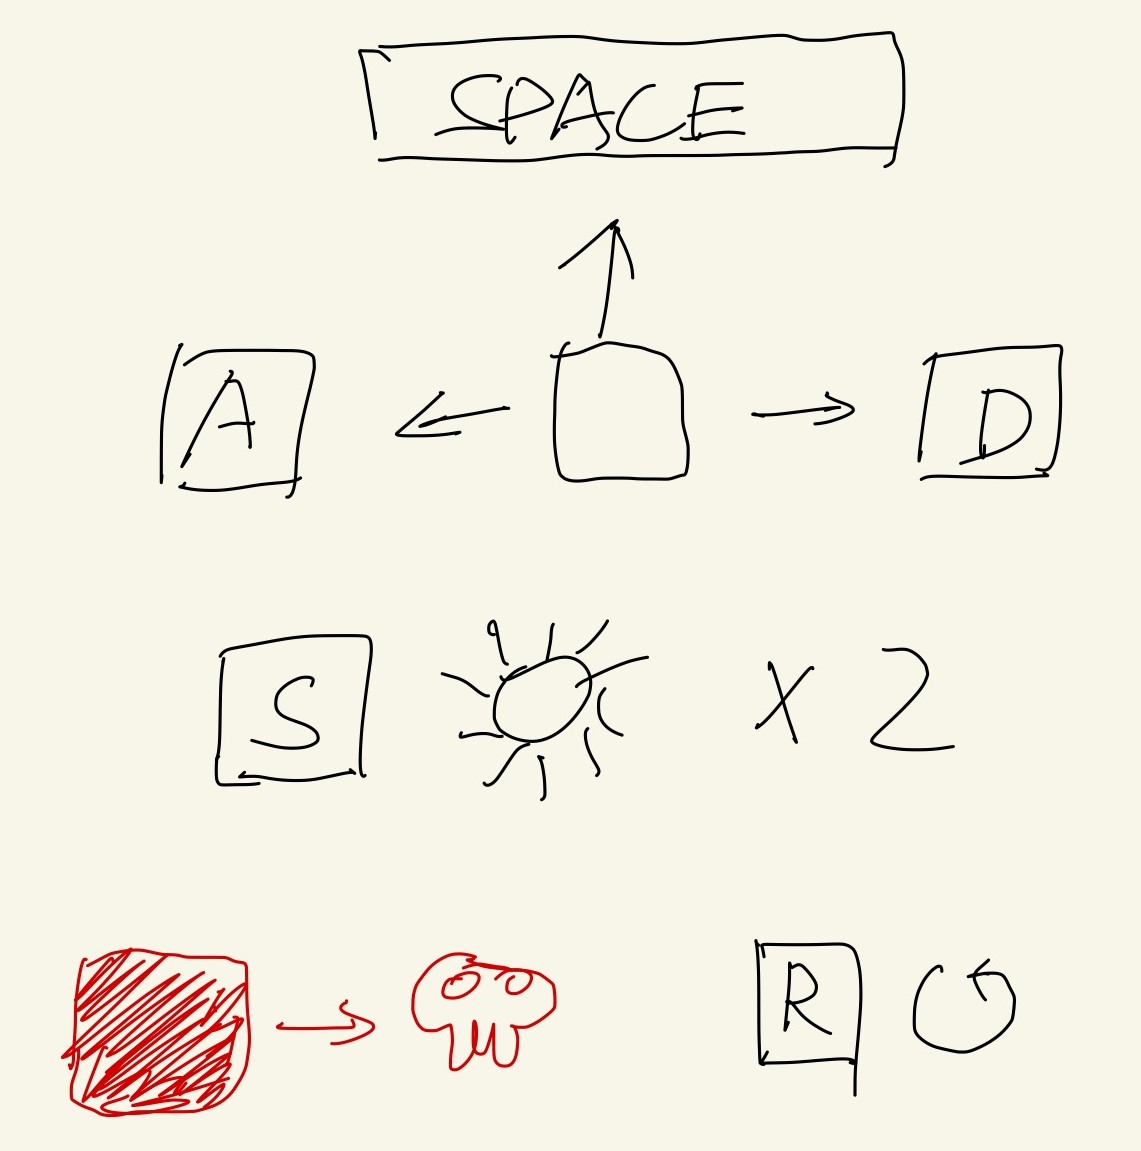 SPACE
A D
S X 2
R